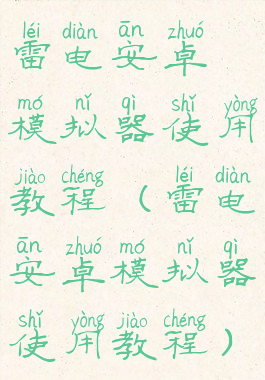 léi diàn ān zhuó
雷电安卓
mó nǐ qì shǐ yòng
模拟器使用
jiào chéng léi diàn
教程（雷电
ān zhuó mó nǐ qì
安卓模拟器
shǐ yòng jiào chéng
使用教程）